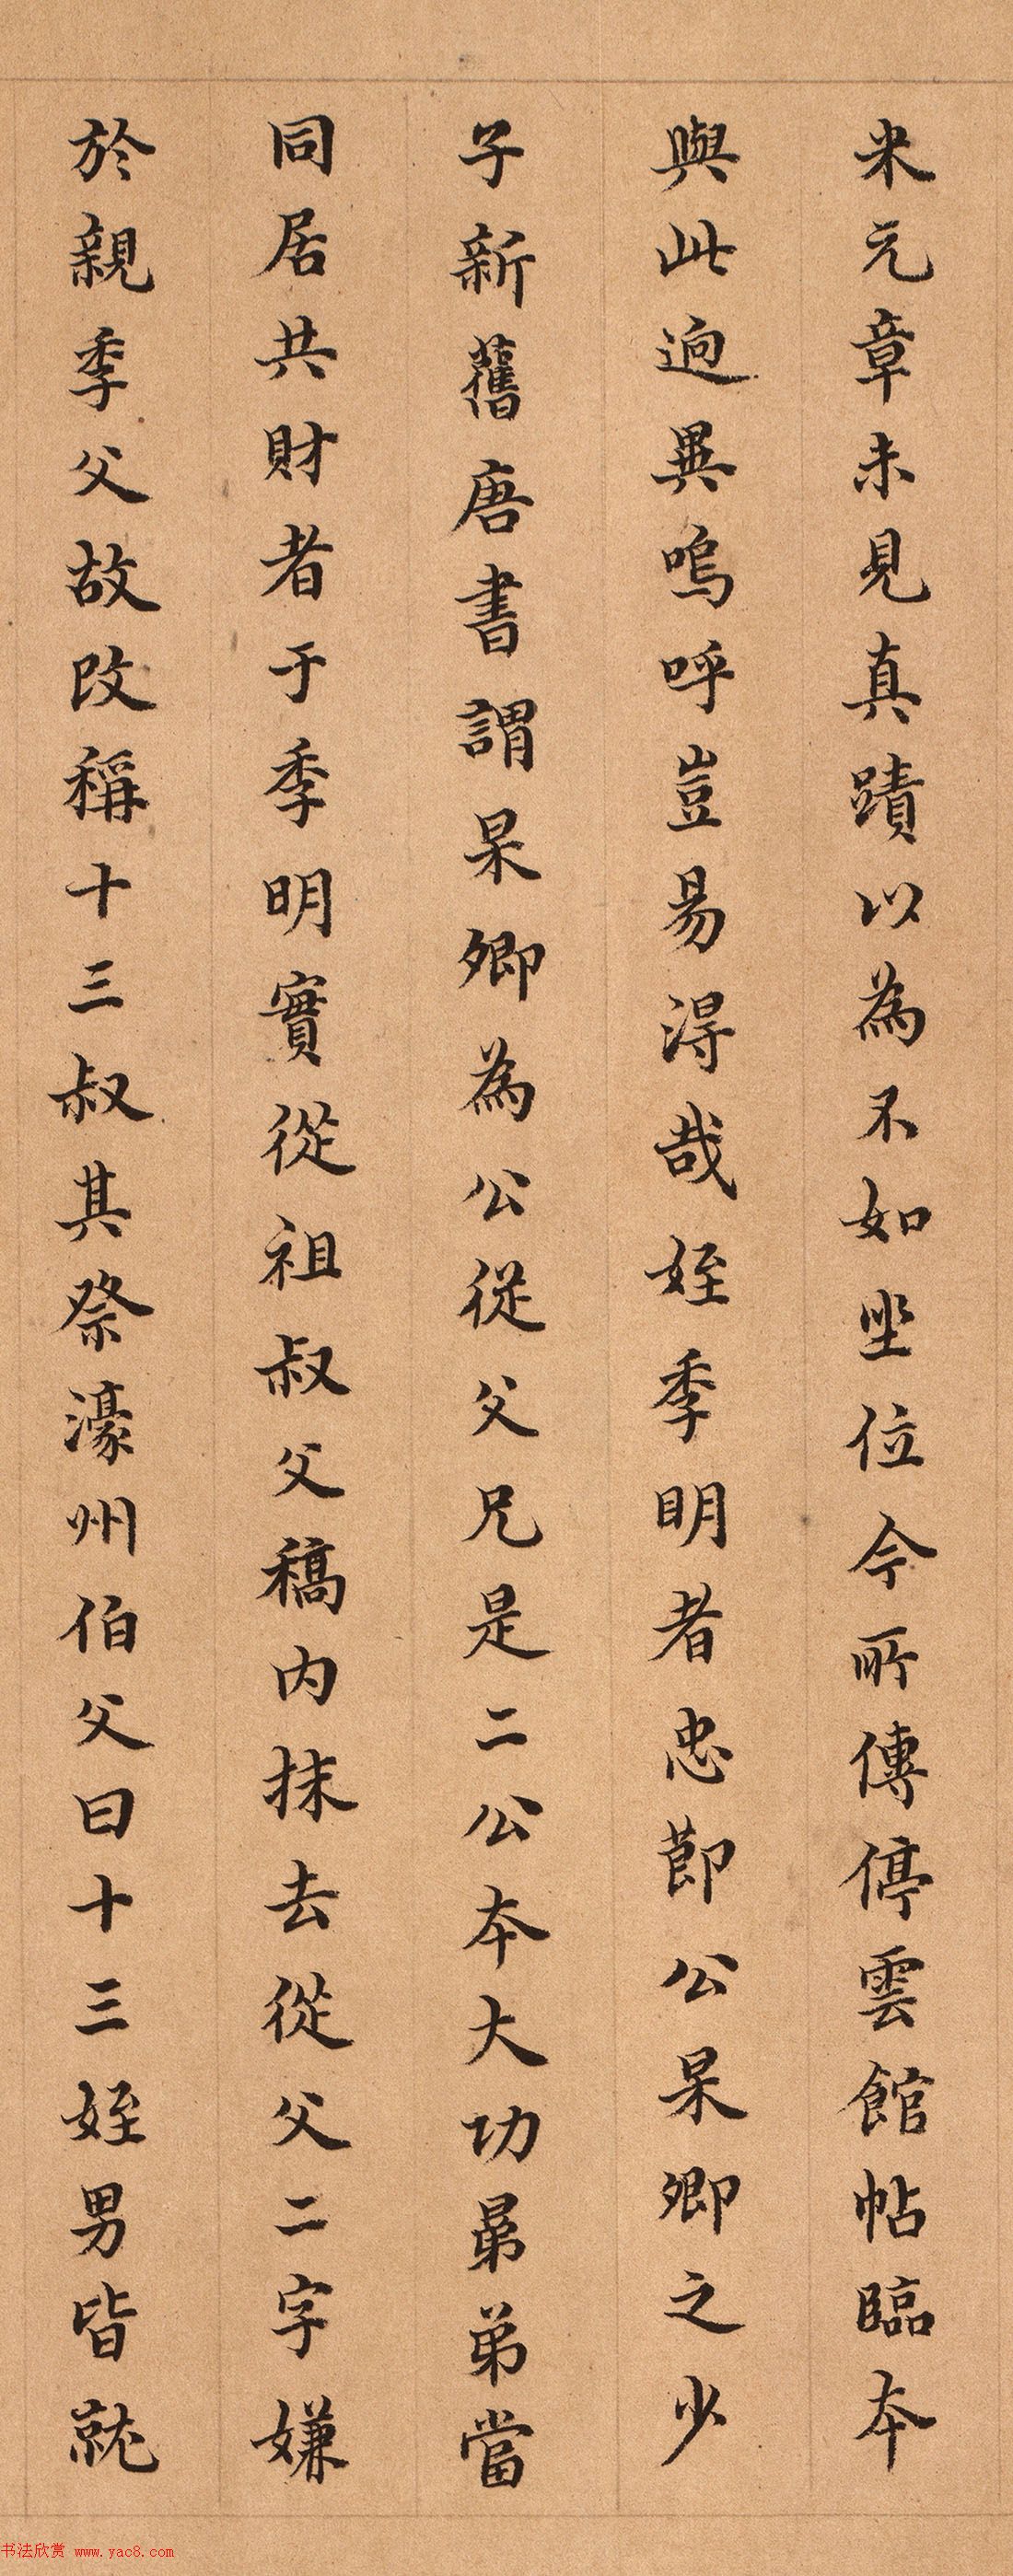 米元章未見真蹟以為不如坐位今所傳停雲館帖臨本
與此逈異嗚呼豈易得哉姪季明者忠節公杲卿之少
子新舊唐書謂杲卿為公從父兄是二公本大功晜弟當
同居共財者于季明實從祖叔父稿內抹去從父二字嫌
於親季父故改稱十三叔其祭濠州伯父曰十三姪男皆就
书法欣赏 www.yac8.com